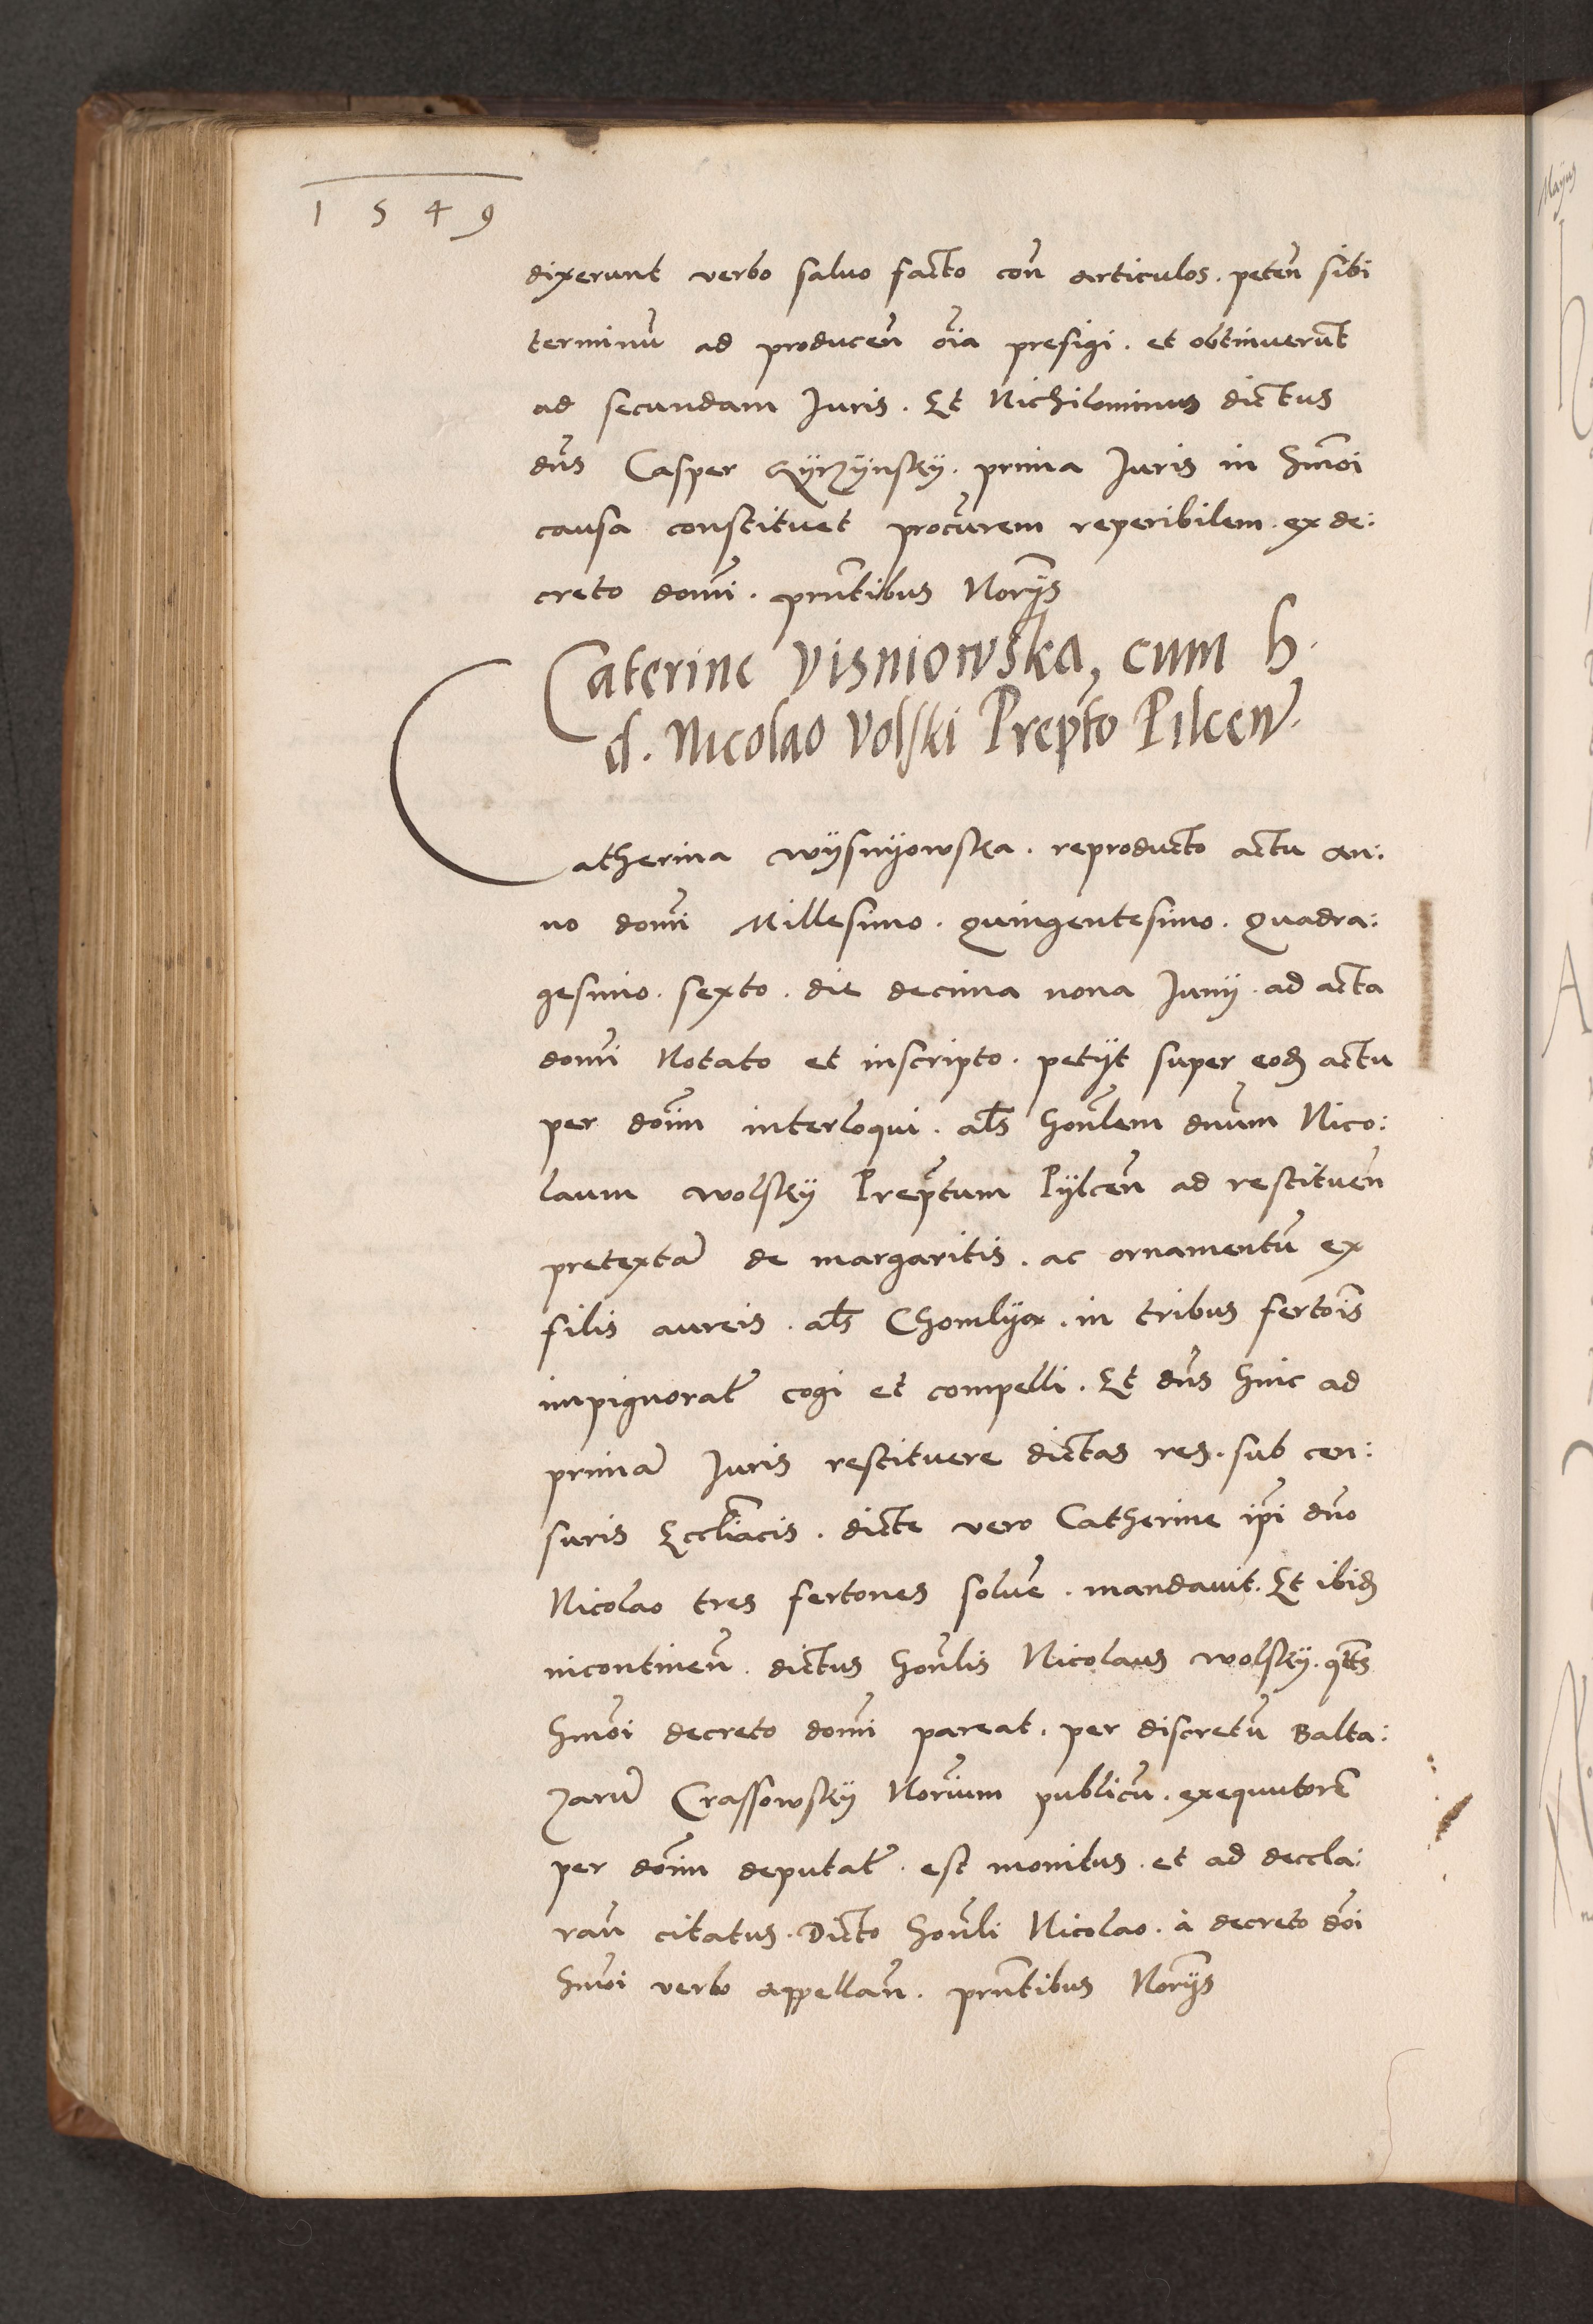 1549
dixerunt verbo saluo facto con̄ articulos. peten̄ sibi
terminū ad producen̄ oīa presigi. et obtinuerūt
ad secundam Juris. Et Nichilominus dictus
dn̄s Casper prima Juris in hm̄oi
causa constituet procūrem reperibilem. ex de:
creto domī. pn̄tibus Norijs
Caterine Visniowska, cum h.
d. Nicolao Volski Prepto Pilcen̄.
Catherina Wÿsnÿowska. reproducto actu an:
no domī Millesimo. quingentesimo. quadra:
gesimo. sexto. die decima nona Junij. ad acta
domī Notato et inscripto. petijt super eod̄ actu
per dōim interloqui. al̄s hon̄lem dnūm Nico:
laum Wolskÿ Prep̄tum Pÿlcen̄ ad restituen̄
pretextā de margaritis. ac ornamentū ex
filis aureis. al̄s Chomlÿa. in tribus fertoīs
impignorat̄ cogi et compelli. Et dn̄s hinc ad
primā Juris restituere dictas res. sub cen:
suris Eccliācis. dicte vero Catherine ip̄i dn̄o
Nicolao tres fertones soluē. mandauit. Et ibid̄
incontinen̄. dictus hon̄lis Nicolaus Wolskÿ. qt̄s
hm̄oi decreto domī pareat. per discretū Balta:
zarū Crassowskÿ Norīum publicū. exequutorē
per dōim deputat̄. est monitus. et ad decla:
ran̄ citatus. Dicto hon̄li Nicolao. à decreto dōi
hm̄oi verbo appellan̄. pn̄tibus Norijs
Maijus